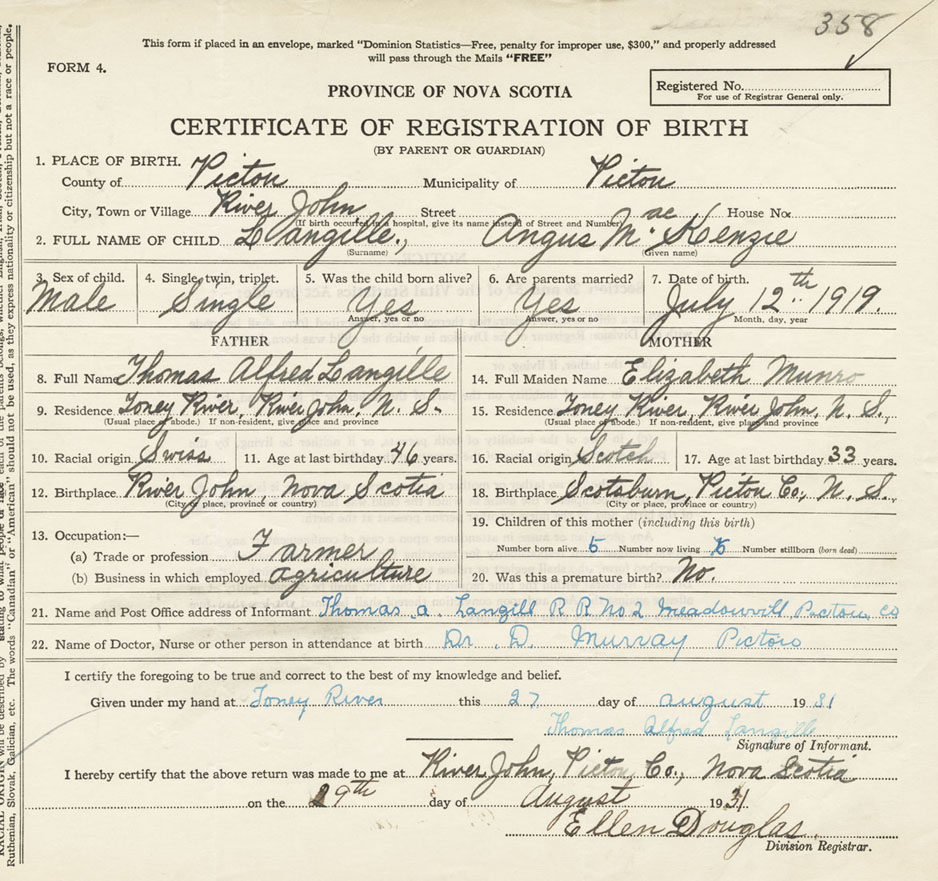 358
This form if placed in an envelope, marked "Dominion Statistics—Free, penalty for improper use, $300," and properly addressed
will pass through the Mails "FREE"
FORM 4.
PROVINCE OF NOVA SCOTIA
Registered No.
For use of Registrar General only.
CERTIFICATE OF REGISTRATION OF BIRTH
(BY PARENT OR GUARDIAN)
1. PLACE OF BIRTH.
County of Pictou Municipality of Pictou
City, Town or Village River John Street House No.
(If birth occurred in a hospital, give its name instead of Street and Number)
2. FULL NAME OF CHILD Langille., Angus Mac Kenzie
(Surname) (Given name)
3. Sex of child. 4. Single, twin, triplet. 5. Was the child born alive? 6. Are parents married? 7. Date of birth.
Male Single Yes Yes July 12th 1919.
Answer, yes or no Answer, yes or no Month, day, year
FATHER MOTHER
8. Full Name Thomas Alfred Langille 14. Full Maiden Name Elizabeth Munro
9. Residence Toney River, River John, N. S. 15. Residence Toney River, River John, N. S.,
(Usual place of abode.) If non-resident, give place and province (Usual place of abode.) If non-resident, give place and province
10. Racial origin Swiss 11. Age at last birthday 46 years. 16. Racial origin Scotch 17. Age at last birthday 33 years.
12. Birthplace River John, Nova Scotia 18. Birthplace Scotsburn, Pictou Co., N. S.,
(City or place, province or country) (City or place, province or country)
13. Occupation:— 19. Children of this mother (including this birth)
(a) Trade or profession Farmer Number born alive 5 Number now living Number stillborn (born dead)
(b) Business in which employed agriculture 20. Was this a premature birth? No.
21. Name and Post Office address of Informant Thomas a. Langill R R No 2 Meadowvill Pictou Co
22. Name of Doctor, Nurse or other person in attendance at birth Dr. D. Murray Pictou
I certify the foregoing to be true and correct to the best of my knowledge and belief.
Given under my hand at Toney River this 27 day of august 1931
Thomas Alfred Langille
Signature of Informant.
I hereby certify that the above return was made to me at River John, Pictou Co., Nova Scotia
on the 29th day of August 1931.
Ellen Douglas.
Division Registrar.
RACIAL ORIGIN will be described by
Ruthenian, Slovak, Galician, etc. The words "Canadian" or "American" should not be used, as they express nationality or citizenship but not a race or people.